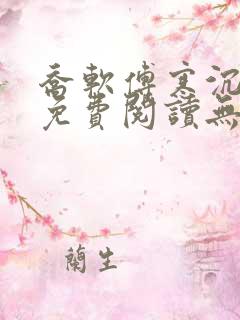 喬軟傅寒沉
免費閱讀無
蘭生